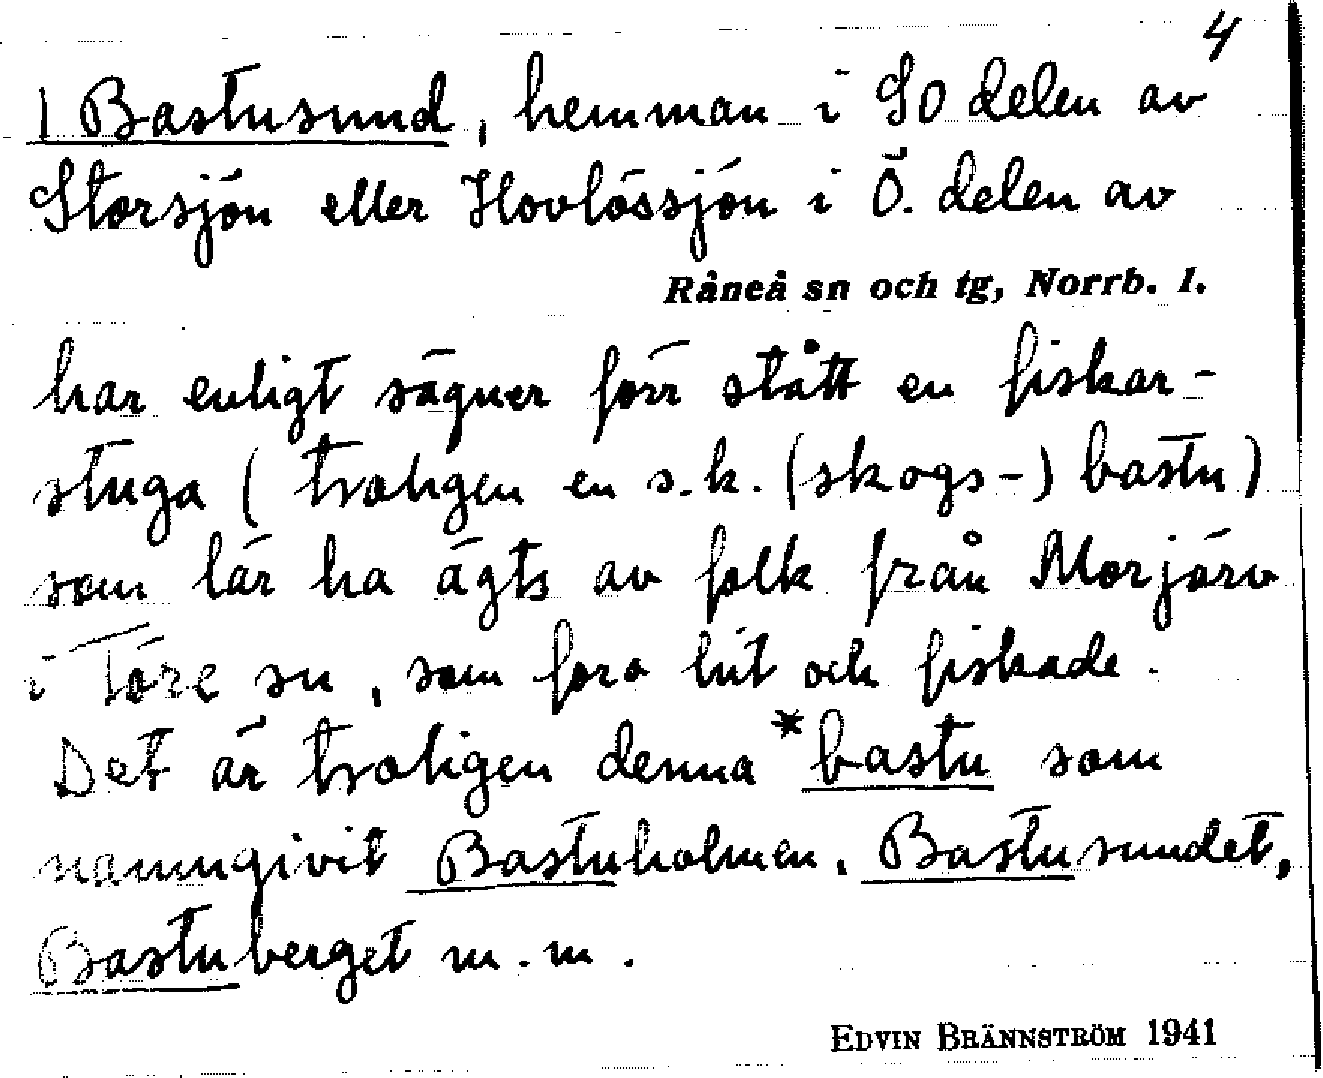 4
1 Bastusund, hemman i SO delen av
Storsjön eller Hovlössjön i Ö. delen av
Råneå sn och tg, Norrb. l.
har enligt sägner förr stått en fiskar-
stuga (troligen en s.k. (skogs-) bastu)
som lär ha ägts av folk från Morjärv
i Töre sn, som foro hit och fiskade.
Det är troligen denna *bastu som
namngivit Bastuholmen, Bastusundet,
Bastuberget m.m.
EDVIN BRÄNNSTRÖM 1941